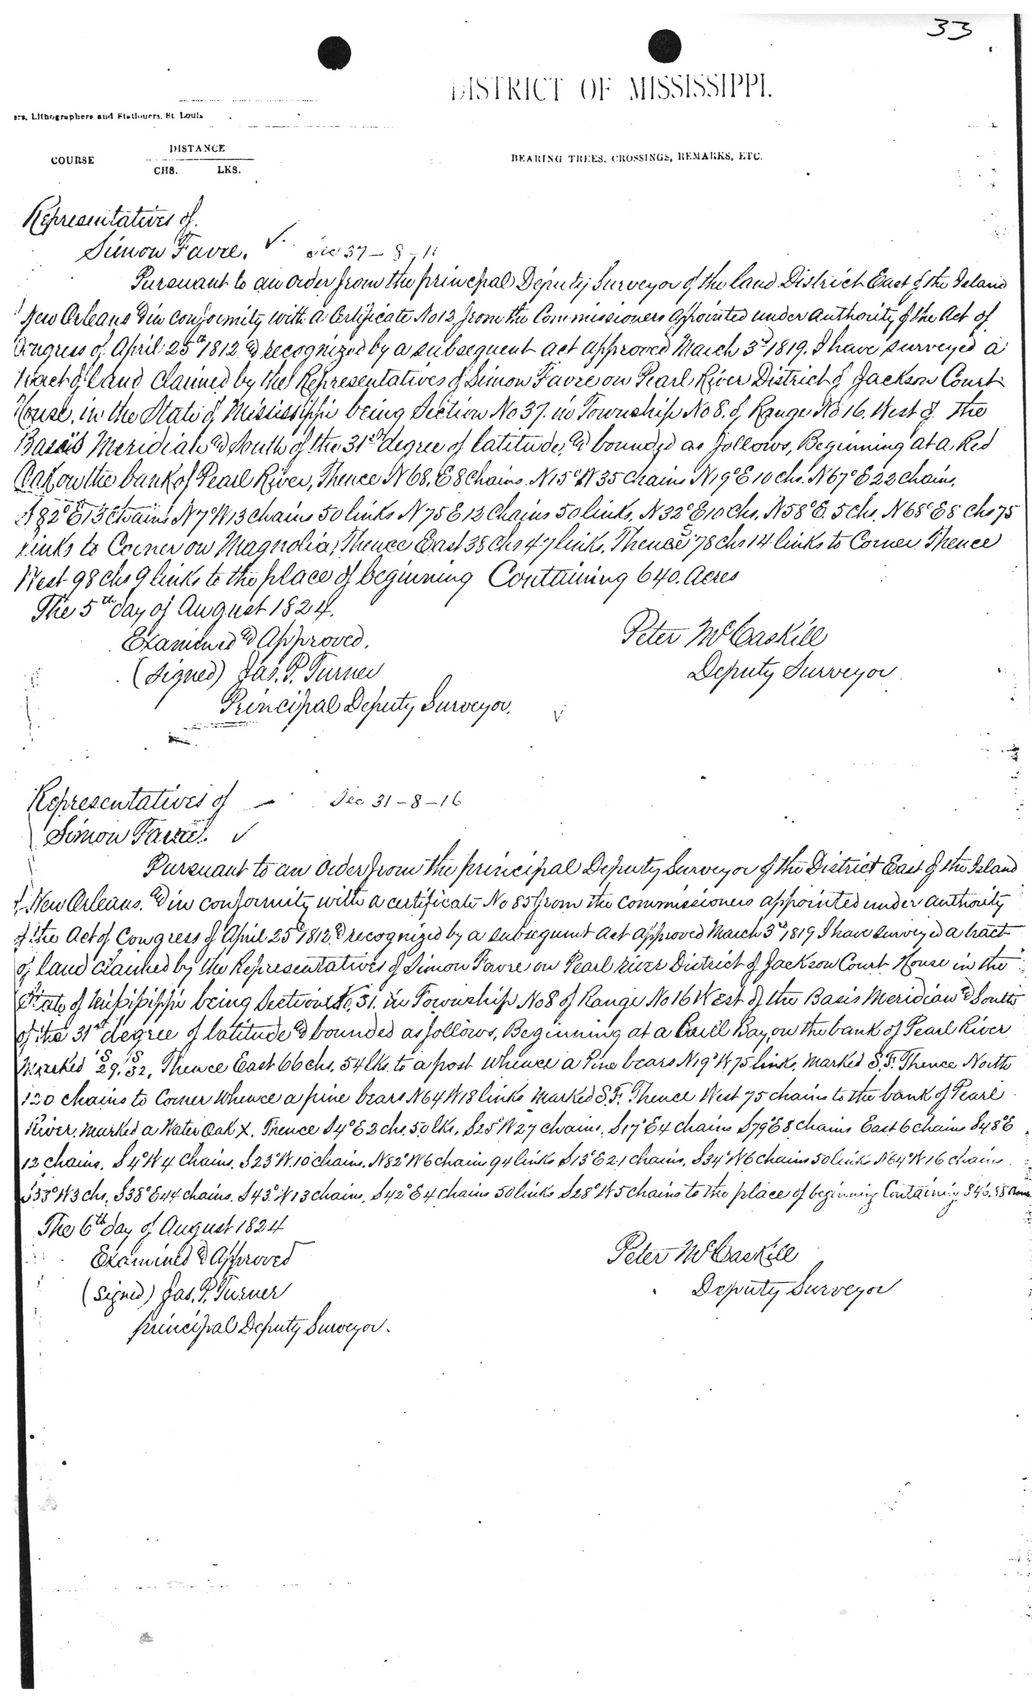 33
DISTRICT OF MISSISSIPPI.
ers, Lithographers and Stationers, St. Louis
COURSE DISTANCE BEARING TREES, CROSSINGS, REMARKS, ETC.
CHS. LKS.
Representatives of
Simon Favre. ✓ Sec 37-8-
Pursuant to an order from the principal Deputy Surveyor of the land District East of the Island
New Orleans & in conformity with a Certificate No 12 from the Commissioners appointed under authority of the Act of
Congress of April 25th 1812 & recognized by a subsequent act approved March 3d 1819. I have surveyed a
tract of land claimed by the Representatives of Simon Favre on Pearl River District of Jackson Court
House, in the State of Mississippi being Section No 37. in Township No 8. of Range No 16. West of the
Basis Meridian & South of the 31st degree of latitude, & bounded as follows, Beginning at a Red
Oak on the bank of Pearl River, Thence N 68. E 8 chains. N 15° W 35 chains N 19° E 10 chs. N 67° E 22 chains.
82° E 13 chains N 7° W 13 chains 50 links N 75 E 12 chains 50 links, N 32° E 10 chs, N 58° E. 5 chs. N 68° E 8 chs 75
links to Corner on Magnolia, Thence East 38 chs 47 links. Thence S 78 chs 14 links to Corner Thence
West 98 chs 9 links to the place of beginning Containing 640. Acres
The 5th day of August 1824.
Examined & Approved. Peter McCaskill
(signed) Jas. P. Turner Deputy Surveyor
Principal Deputy Surveyor.
Representatives of Sec 31-8-16
Simon Favre. ✓
Pursuant to an order from the principal Deputy Surveyor of the District East of the Island
New Orleans. & in conformity with a certificate No 85 from the commissioners appointed under authority
of the Act of Congress of April 25th 1812 & recognized by a subsequent act approved March 3d 1819 I have surveyed a tract
of land claimed by the Representatives of Simon Favre on Pearl River District of Jackson Court House in the
State of Mississippi being Section No 31. in Township No 8 of Range No 16 West of the Basis Meridian & South
of the 31st degree of latitude & bounded as follows, Beginning at a Bay, on the bank of Pearl River
Marked S 29. S 32, Thence East 66 chs. 54 lks. to a post whence a Pine bears N 19° W 75 links, marked S.F. Thence North
120 chains to Corner whence a pine bears N 64 W 18 links marked S.F. Thence West 75 chains to the bank of Pearl
River. marked a Water Oak X. Thence S 4° E 2 chs. 50 lks, S 25° W 27 chains, S 17° E 4 chains S 79° E 8 chains East 6 chains S 48° E
12 chains, S 4° W 4 chains, S 23° W. 10 chains. N 82° W 6 chain 94 links S 13° E 21 chains, S 34° W 6 chains 50 links N 64° W 16 chains
S 33° W 3 chs. S 38° E 44 chains. S 43° W 13 chains, S 42° E 4 chains 50 links S 28° W 5 chains to the place of beginning Containing
The 6th day of August 1824
Examined & Approved Peter McCaskill
(signed) Jas. P. Turner Deputy Surveyor
principal Deputy Surveyor.